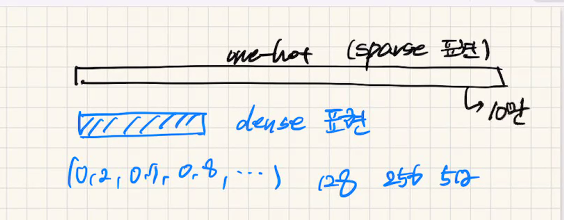 one-hot (sparse 표현)
10만
dense 표현
(0.2, 0.7, 0.8, ...) 128 256 512